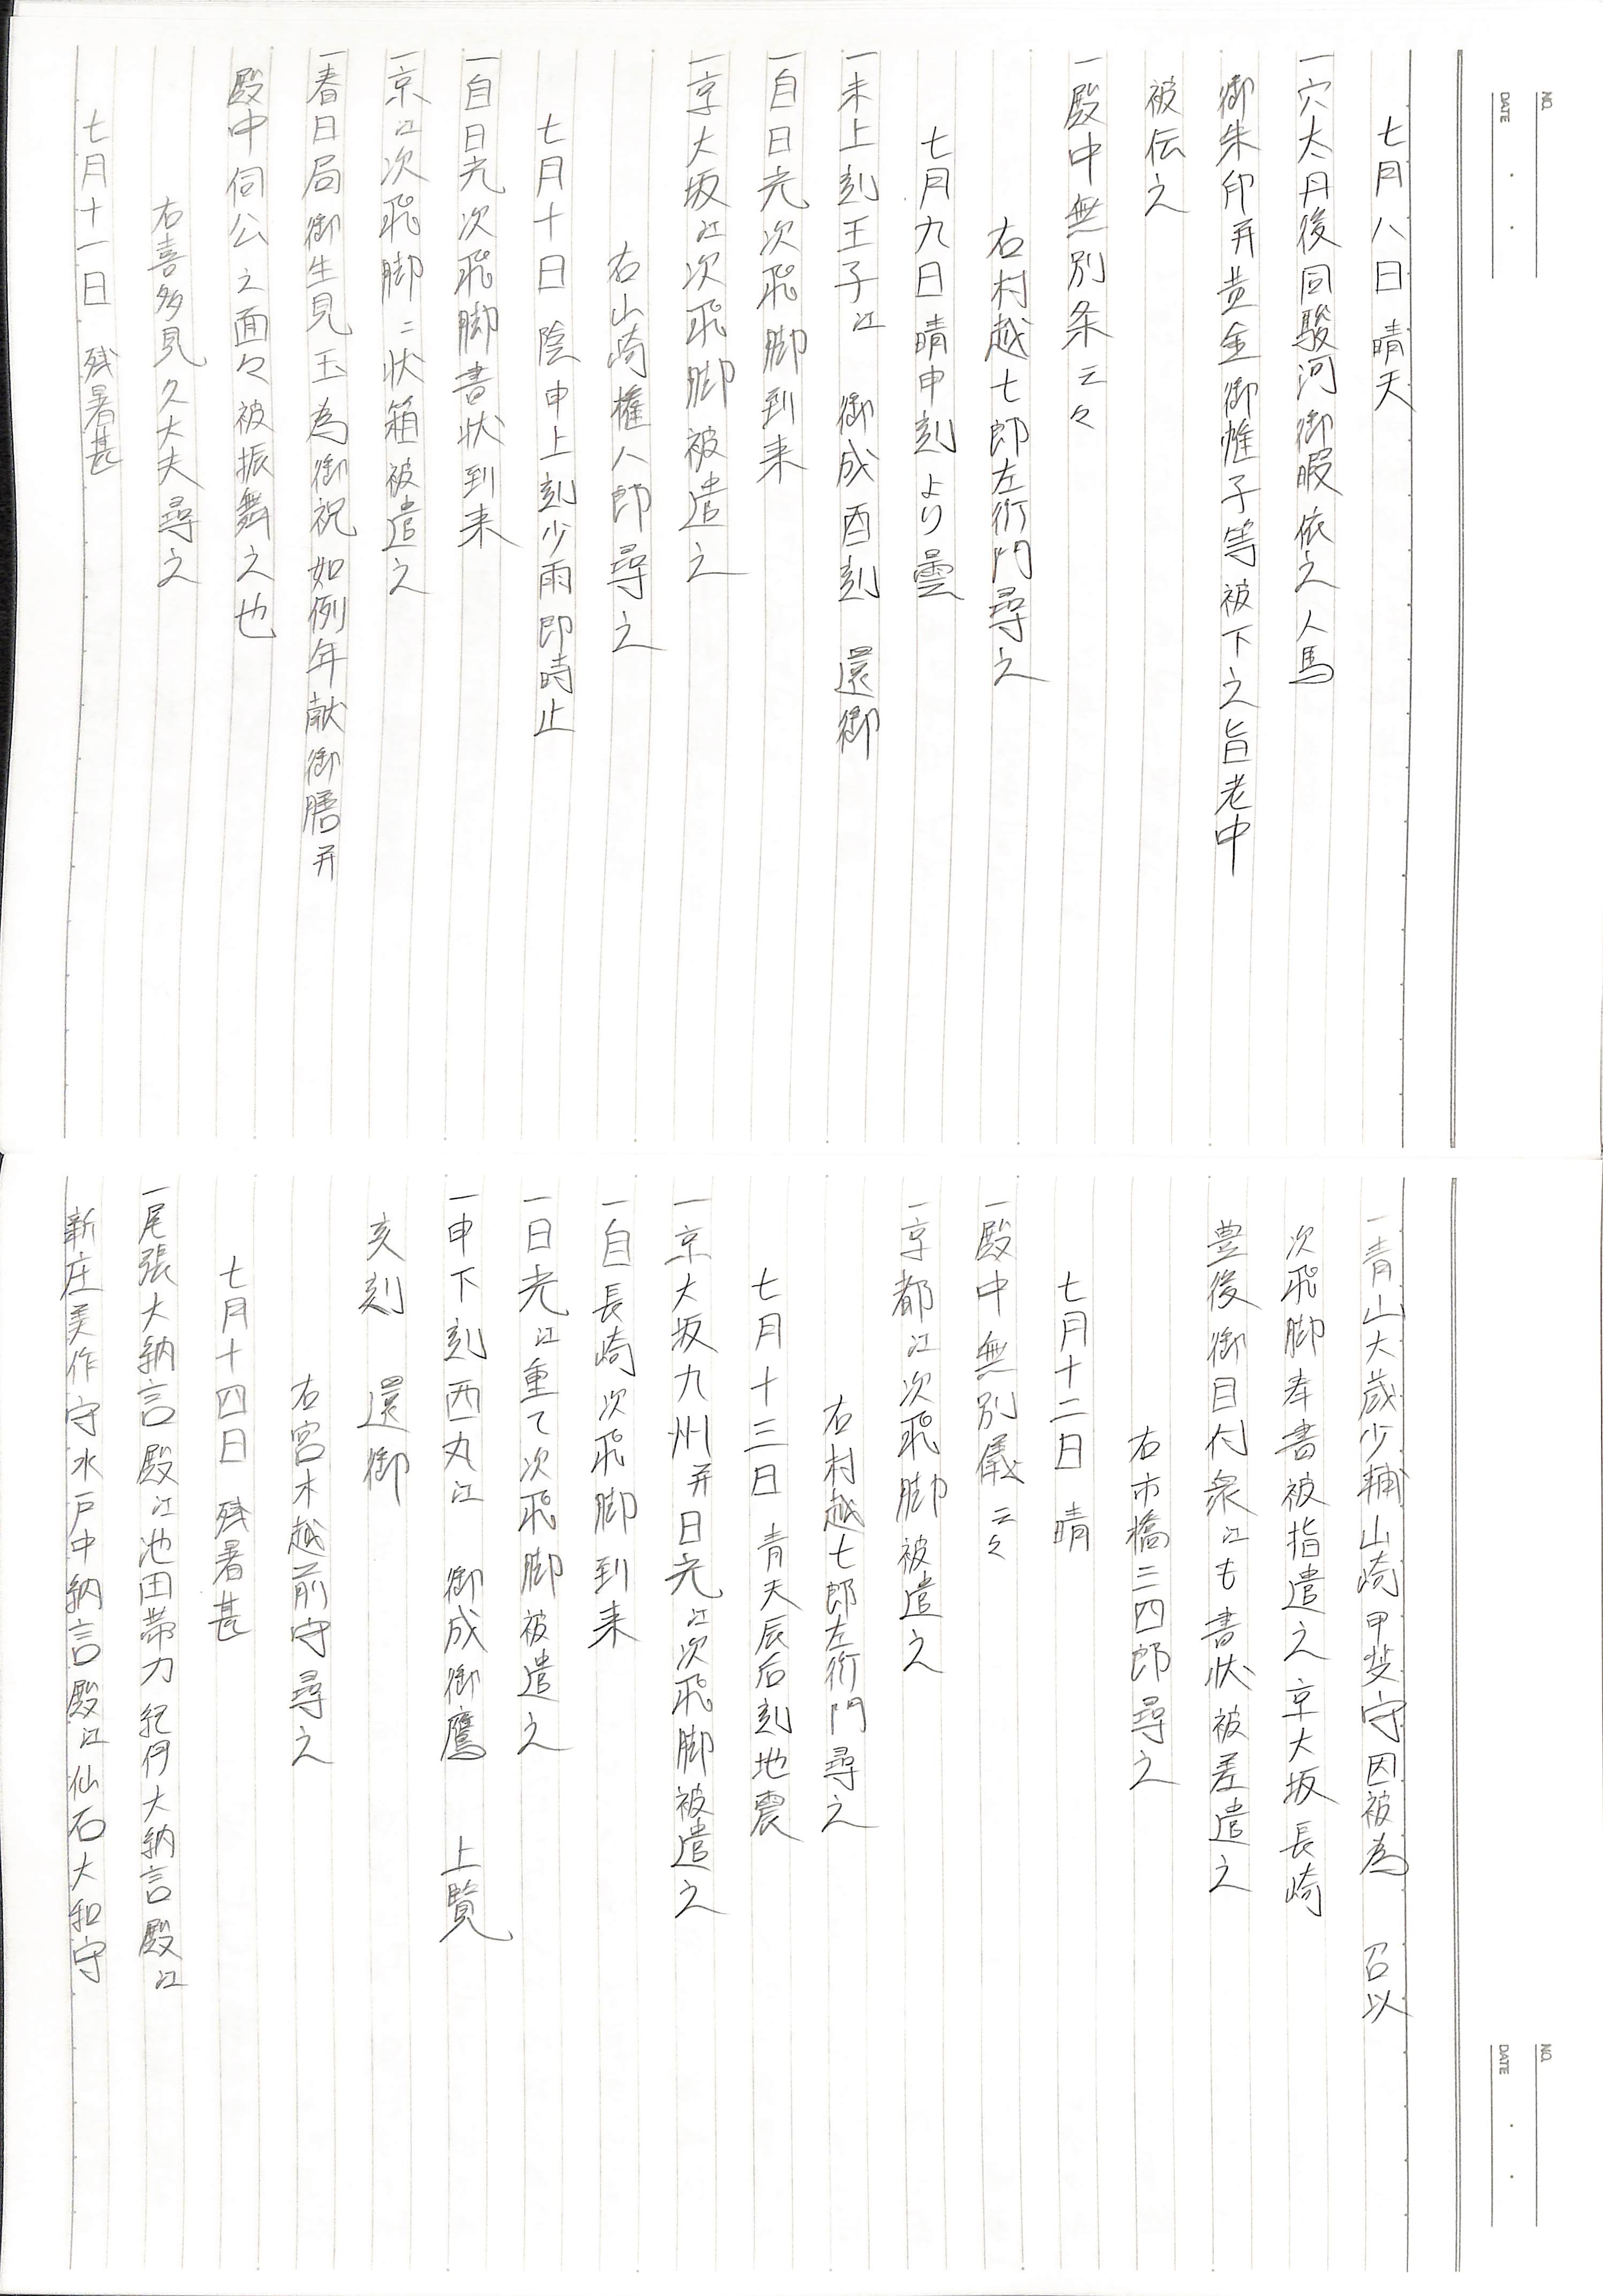 NO.
DATE
七月八日 晴天
一穴太丹後回駿河御暇依之人馬
御朱印并黄金御帷子等被下之旨老中
被伝之
一殿中無別条云々
右村越七郎左衛門尋之
七月九日晴申刻より曇
一未上刻王子江 御成酉刻 還御
一自日光次飛脚到来
一京大坂江次飛脚被遣之
右山崎権八郎尋之
七月十日 陰申上刻少雨即時止
一自日光次飛脚書状到来
一京江次飛脚ニ状箱被遣之
一春日局御生見玉為御祝如例年献御膳并
殿中伺公之面々被振舞之也
右喜多見久大夫尋之
七月十一日 残暑甚
NO.
DATE
一青山大蔵少輔山崎甲斐守因被為 召以
次飛脚奉書被指遣之京大坂長崎
豊後御目付衆江も書状被差遣之
右市橋三四郎尋之
七月十二日 晴
一殿中無別儀云々
一京都江次飛脚被遣之
右村越七郎左衛門尋之
七月十三日 青天辰后刻地震
一京大坂九州并日光江次飛脚被遣之
一自長崎次飛脚到来
一日光江重て次飛脚被遣之
一申下刻西丸江 御成御鷹 上覧
亥刻 還御
右宮木越前守尋之
七月十四日 残暑甚
一尾張大納言殿江池田帯刀紀伊大納言殿江
新庄美作守水戸中納言殿江仙石大和守